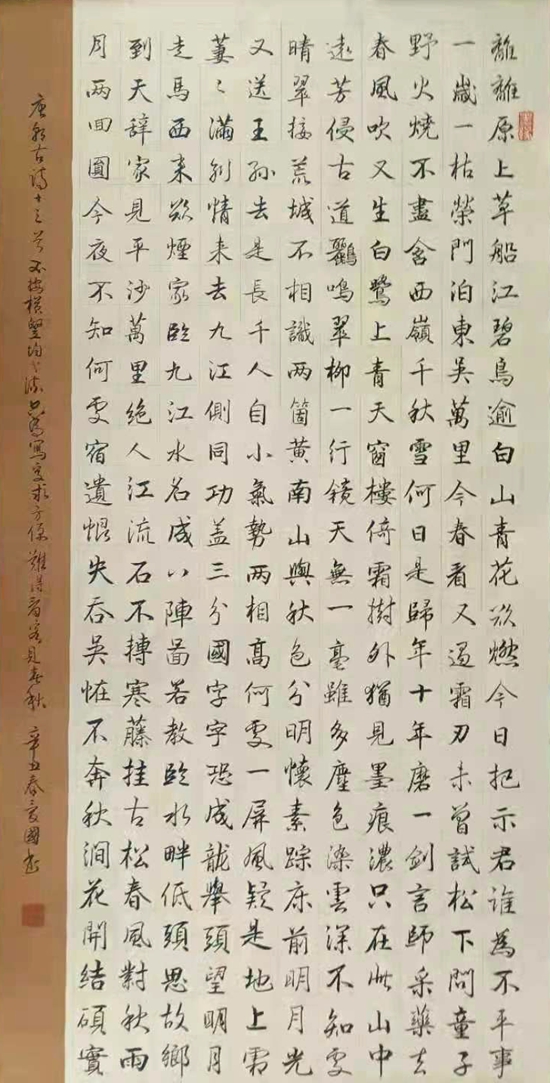 離離原上草船江碧鳥逾白山青花欲燃今日把示君誰為不平事
一歲一枯榮門泊東吳萬里今春看又過霜刃未曾試松下問童子
野火燒不盡含西嶺千秋雪何日是歸年十年磨一劍言師采藥去
春風吹又生白鷺上青天窗樓倚霜樹外猶見墨痕濃只在此山中
遠芳侵古道鸝鳴翠柳一行鏡天無一毫雖多塵色染雲深不知處
晴翠接荒城不相識兩箇黃南山與秋色分明懷素踪床前明月光
又送王孫去是長千人自小氣勢兩相高何處一屏風疑是地上霜
萋々滿別情來去九江側同功蓋三分國字字恐成龍舉頭望明月
走馬西來欲煙家臨九江水名成八陣圖若教臨水畔低頭思故鄉
到天辭家見平沙萬里絕人江流石不轉寒藤挂古松春風對秋雨
月兩回圓今夜不知何處宿遺恨失吞吳恠不奔秋澗花開結碩實
唐朝古詩十三首不按橫豎 難得看客見春秋 辛丑春愛國書